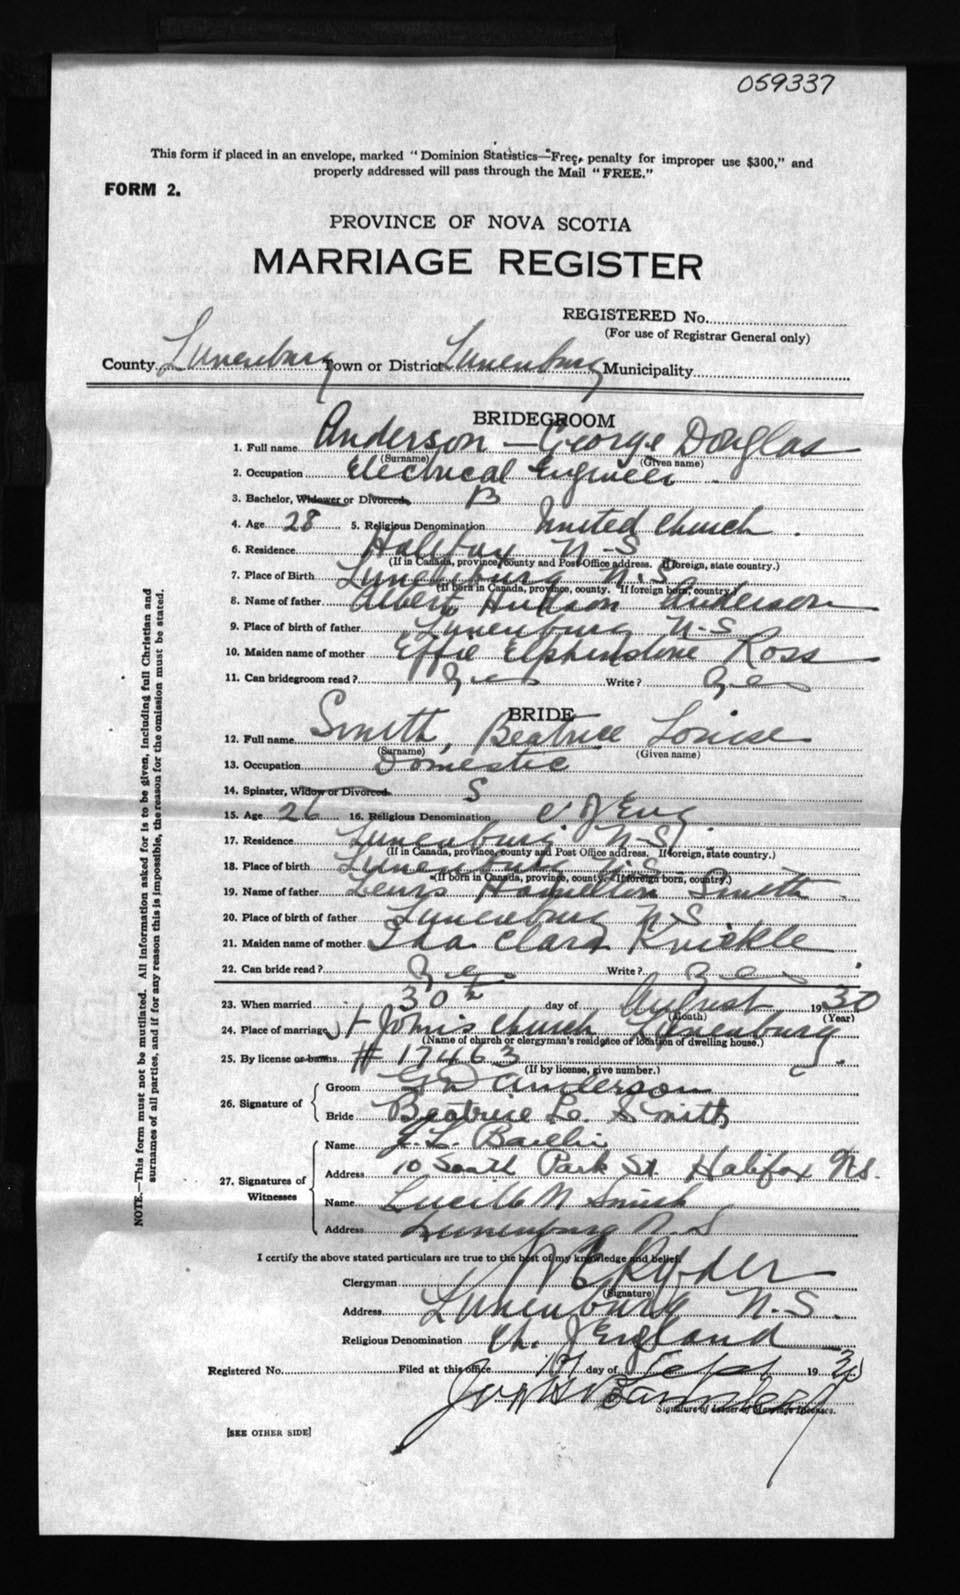 059337
This form if placed in an envelope, marked "Dominion Statistics—Free, penalty for improper use $300," and
properly addressed will pass through the Mail "FREE."
FORM 2.
PROVINCE OF NOVA SCOTIA
MARRIAGE REGISTER
REGISTERED No.
(For use of Registrar General only)
County Lunenburg Town or District Lunenburg Municipality
BRIDEGROOM
1. Full name Anderson — George Douglas
(Surname) (Given name)
2. Occupation Electrical Engineer.
3. Bachelor, Widower or Divorced B
4. Age 28 5. Religious Denomination United Church.
6. Residence Halifax N-S
(If in Canada, province, county and Post Office address. If foreign, state country.)
7. Place of Birth Lunenburg N.S
(If born in Canada, province, county. If foreign born, country.)
8. Name of father Albert Hudson Anderson
9. Place of birth of father Lunenburg N-S
10. Maiden name of mother Effie Elphinstone Ross
11. Can bridegroom read? Yes Write? Yes
BRIDE
12. Full name Smith, Beatrice Louise
(Surname) (Given name)
13. Occupation Domestic
14. Spinster, Widow or Divorced S
15. Age 26 16. Religious Denomination C of Eng.
17. Residence Lunenburg N-S
(If in Canada, province, county and Post Office address. If foreign, state country.)
18. Place of birth Lunenburg N.S
(If born in Canada, province, county. If foreign born, country.)
19. Name of father Lewis Hamilton Smith
20. Place of birth of father Lunenburg N.S.
21. Maiden name of mother Ida Clara Knickle
22. Can bride read? Yes Write? Yes
23. When married 30th day of August 1930
(Month) (Year)
24. Place of marriage St John's Church Lunenburg
(Name of church or clergyman's residence or location of dwelling house.)
25. By license or banns # 17463
(If by license, give number.)
26. Signature of
Groom G D Anderson
Bride Beatrice L. Smith
27. Signatures of Witnesses
Name
Address 10 South Park St. Halifax N.S.
Name Lucille N Smith
Address Lunenburg N.S
I certify the above stated particulars are true to the best of my knowledge and belief.
Clergyman Ryder
(Signature)
Address Lunenburg N.S.
Religious Denomination Ch. of England
Registered No. Filed at this office day of Sept 1930
Signature of Issuer of Marriage Licenses.
[SEE OTHER SIDE]
NOTE.—This form must not be mutilated. All information asked for is to be given, including full Christian and
surnames of all parties, and if for any reason this is impossible, the reason for the omission must be stated.